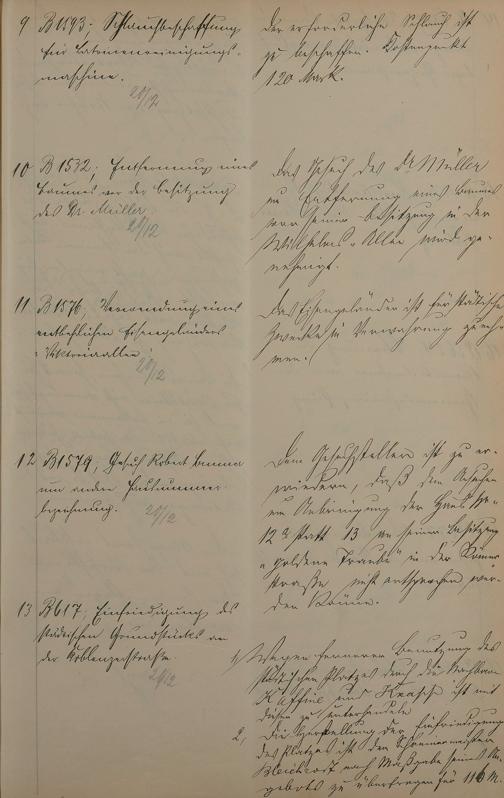 9 B 1193; Schlauchbeschaffung
für Latrinenreinigungs-
maschine.
29/12
Der erforderliche Schlauch ist
zu beschaffen. Kostenpunkt
120 Mark.
10 B 1532; Entfernung eines
Baumes vor der Besitzung
des Dr. Müller
29/12
Das Gesuch des Dr Müller
um Entfernung eines Baumes
vor seiner Besitzung in der
Wilhelms-Allee wird ge-
nehmigt.
11 B 1576, Verwendung eines
entbehrlichen Eisengeländers
Viktoriaallee
29/12
Das Eisengeländer ist für städtische
Zwecke in Verwahrung zu neh-
men.
12 B 1579, Gesuch Robert
um andere Hausnummer-
bezeichnung.
29/12
Dem Gesuchsteller ist zu er-
wiedern, daß dem Ansuchen
um Anbringung der Haus No
12a statt 13 an seiner Besitzung
"goldene Traube" in der Römer
straße nicht entsprochen wer-
den könne.
13 B 617; Einfriedigung des
städtischen Grundstücks an
der Koblenzerstraße
29/12
1, Wegen ferneren Benutzung des
städtischen Platzes durch die Nachbarn
und ist mit
diesen zu unterhandeln
2, Die Herstellung der Einfriedigung
des Platzes ist dem Schreinermeister
nach Maßgabe seines An-
gebots zu übertragen für 116 M.